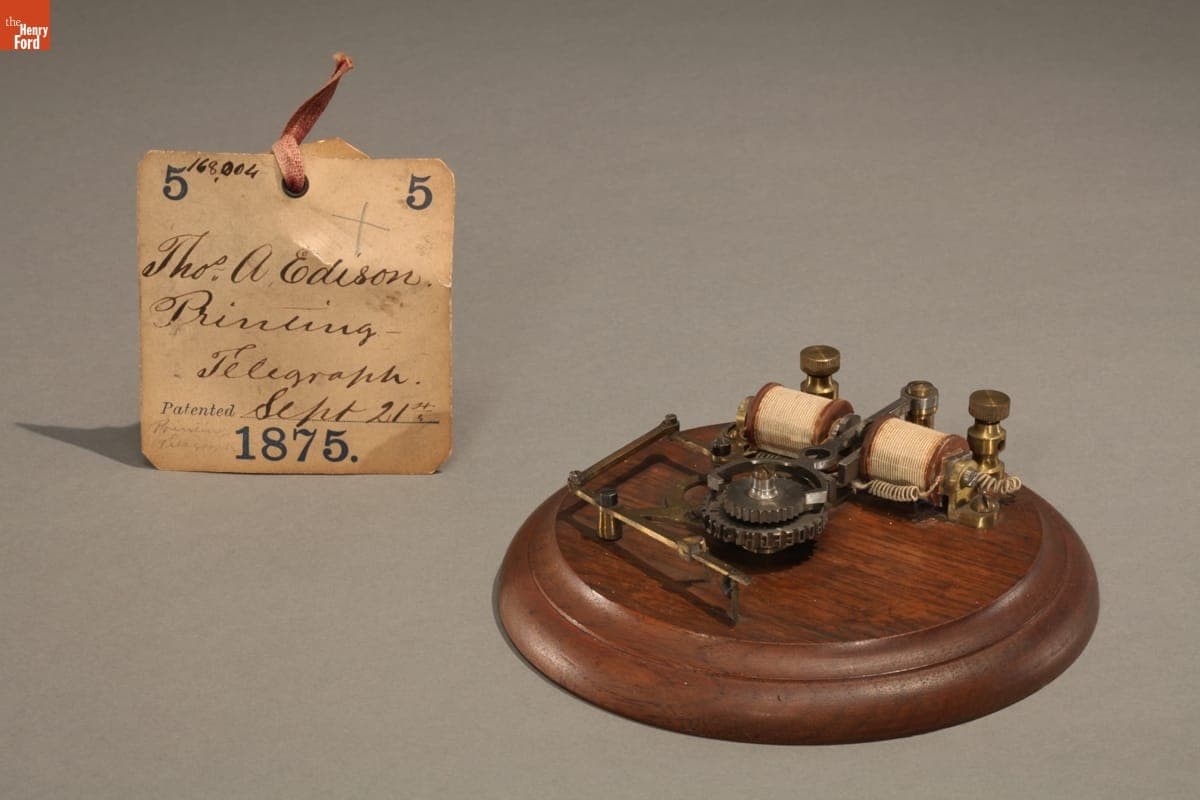 the
Henry
Ford
5 168,004 5
Thos. A. Edison.
Printing
Telegraph.
Patented Sept 21st
1875.